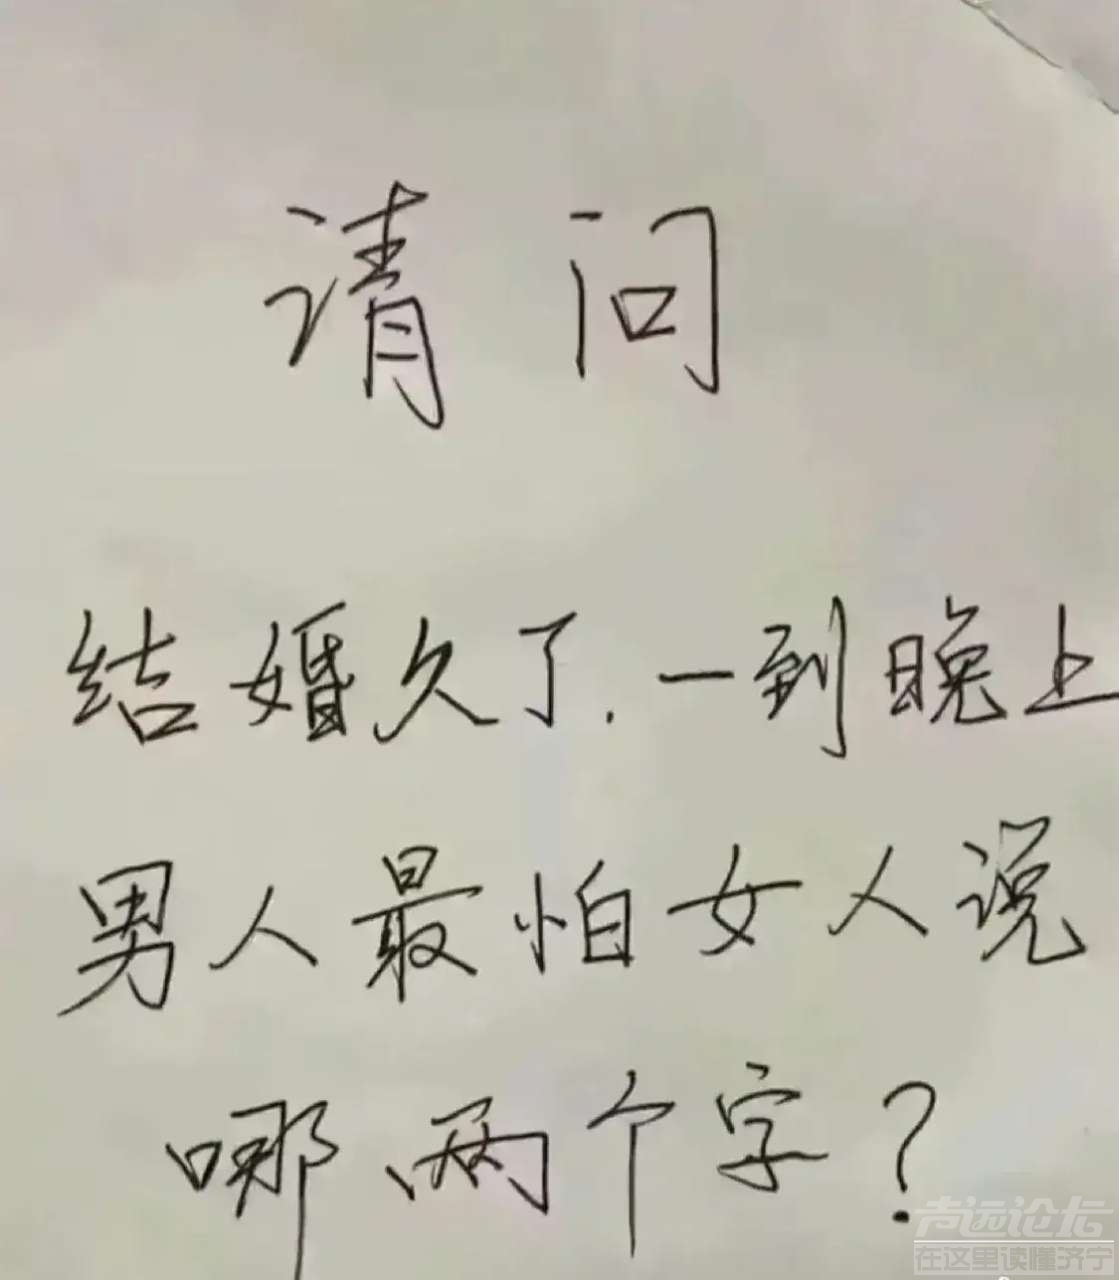 请问
结婚久了.一到晚上
男人最怕女人说
哪两个字?
声远论坛
在这里读懂济宁